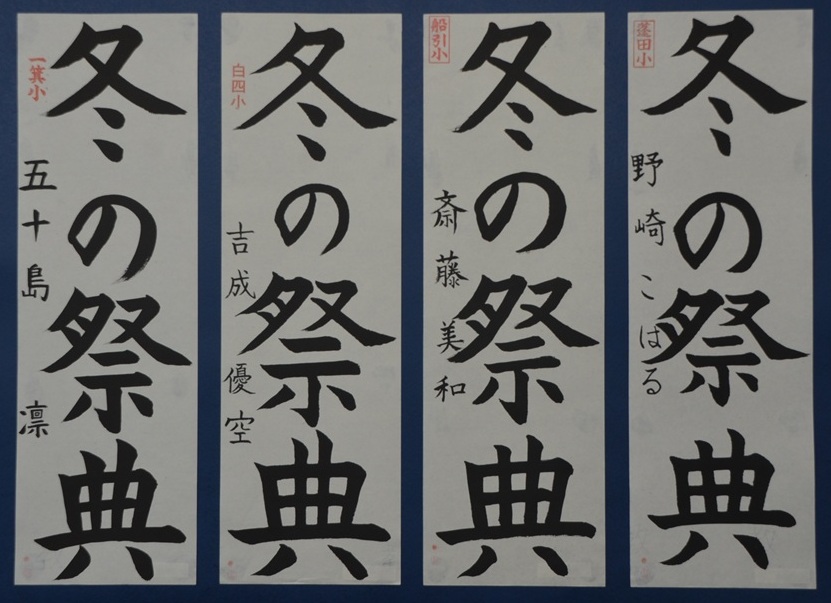 冬の祭典
船引小
斎藤美和
冬の祭典
蓬田小
野崎こはる
冬の祭典
白四小
吉成優空
冬の祭典
一箕小
五十島凛